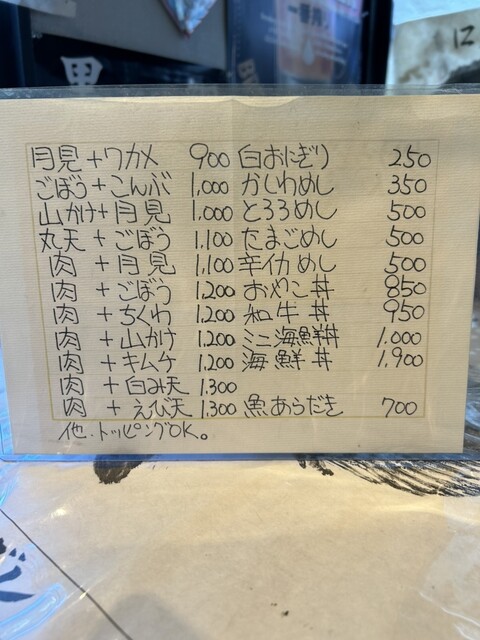 月見+ワカメ 900 白おにぎり 250
ごぼう+こんぶ 1,000 かしわめし 350
山かけ+月見 1,000 とろろめし 500
丸天+ごぼう 1,100 たまごめし 500
肉+月見 1,100 辛イカめし 500
肉+ごぼう 1,200 おやこ丼 850
肉+ちくわ 1,200 和牛丼 950
肉+山かけ 1,200 ミニ海鮮丼 1,000
肉+キムチ 1,200 海鮮丼 1,900
肉+白み天 1,300
肉+えび天 1,300 魚あらだき 700
他.トッピングOK。